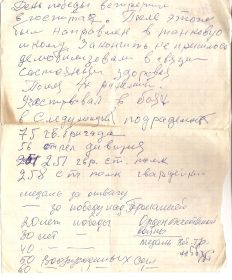 День победы встретил
в госпитале. После этого
был направлен в танковую
школу. Закончить не пришлось
демобилизовали в связи
состояния здоровья
Участвовал в боях
в следующих подразделен
75 гв. бригада
56 стрел дивизия
251 гвр. ст. полк
258 ст полк гвардейский
медаль за отвагу
— за победу над Германией
20 лет победы Орден отечественной
30 лет — войны
40 — —
50 вооруженных сил
60